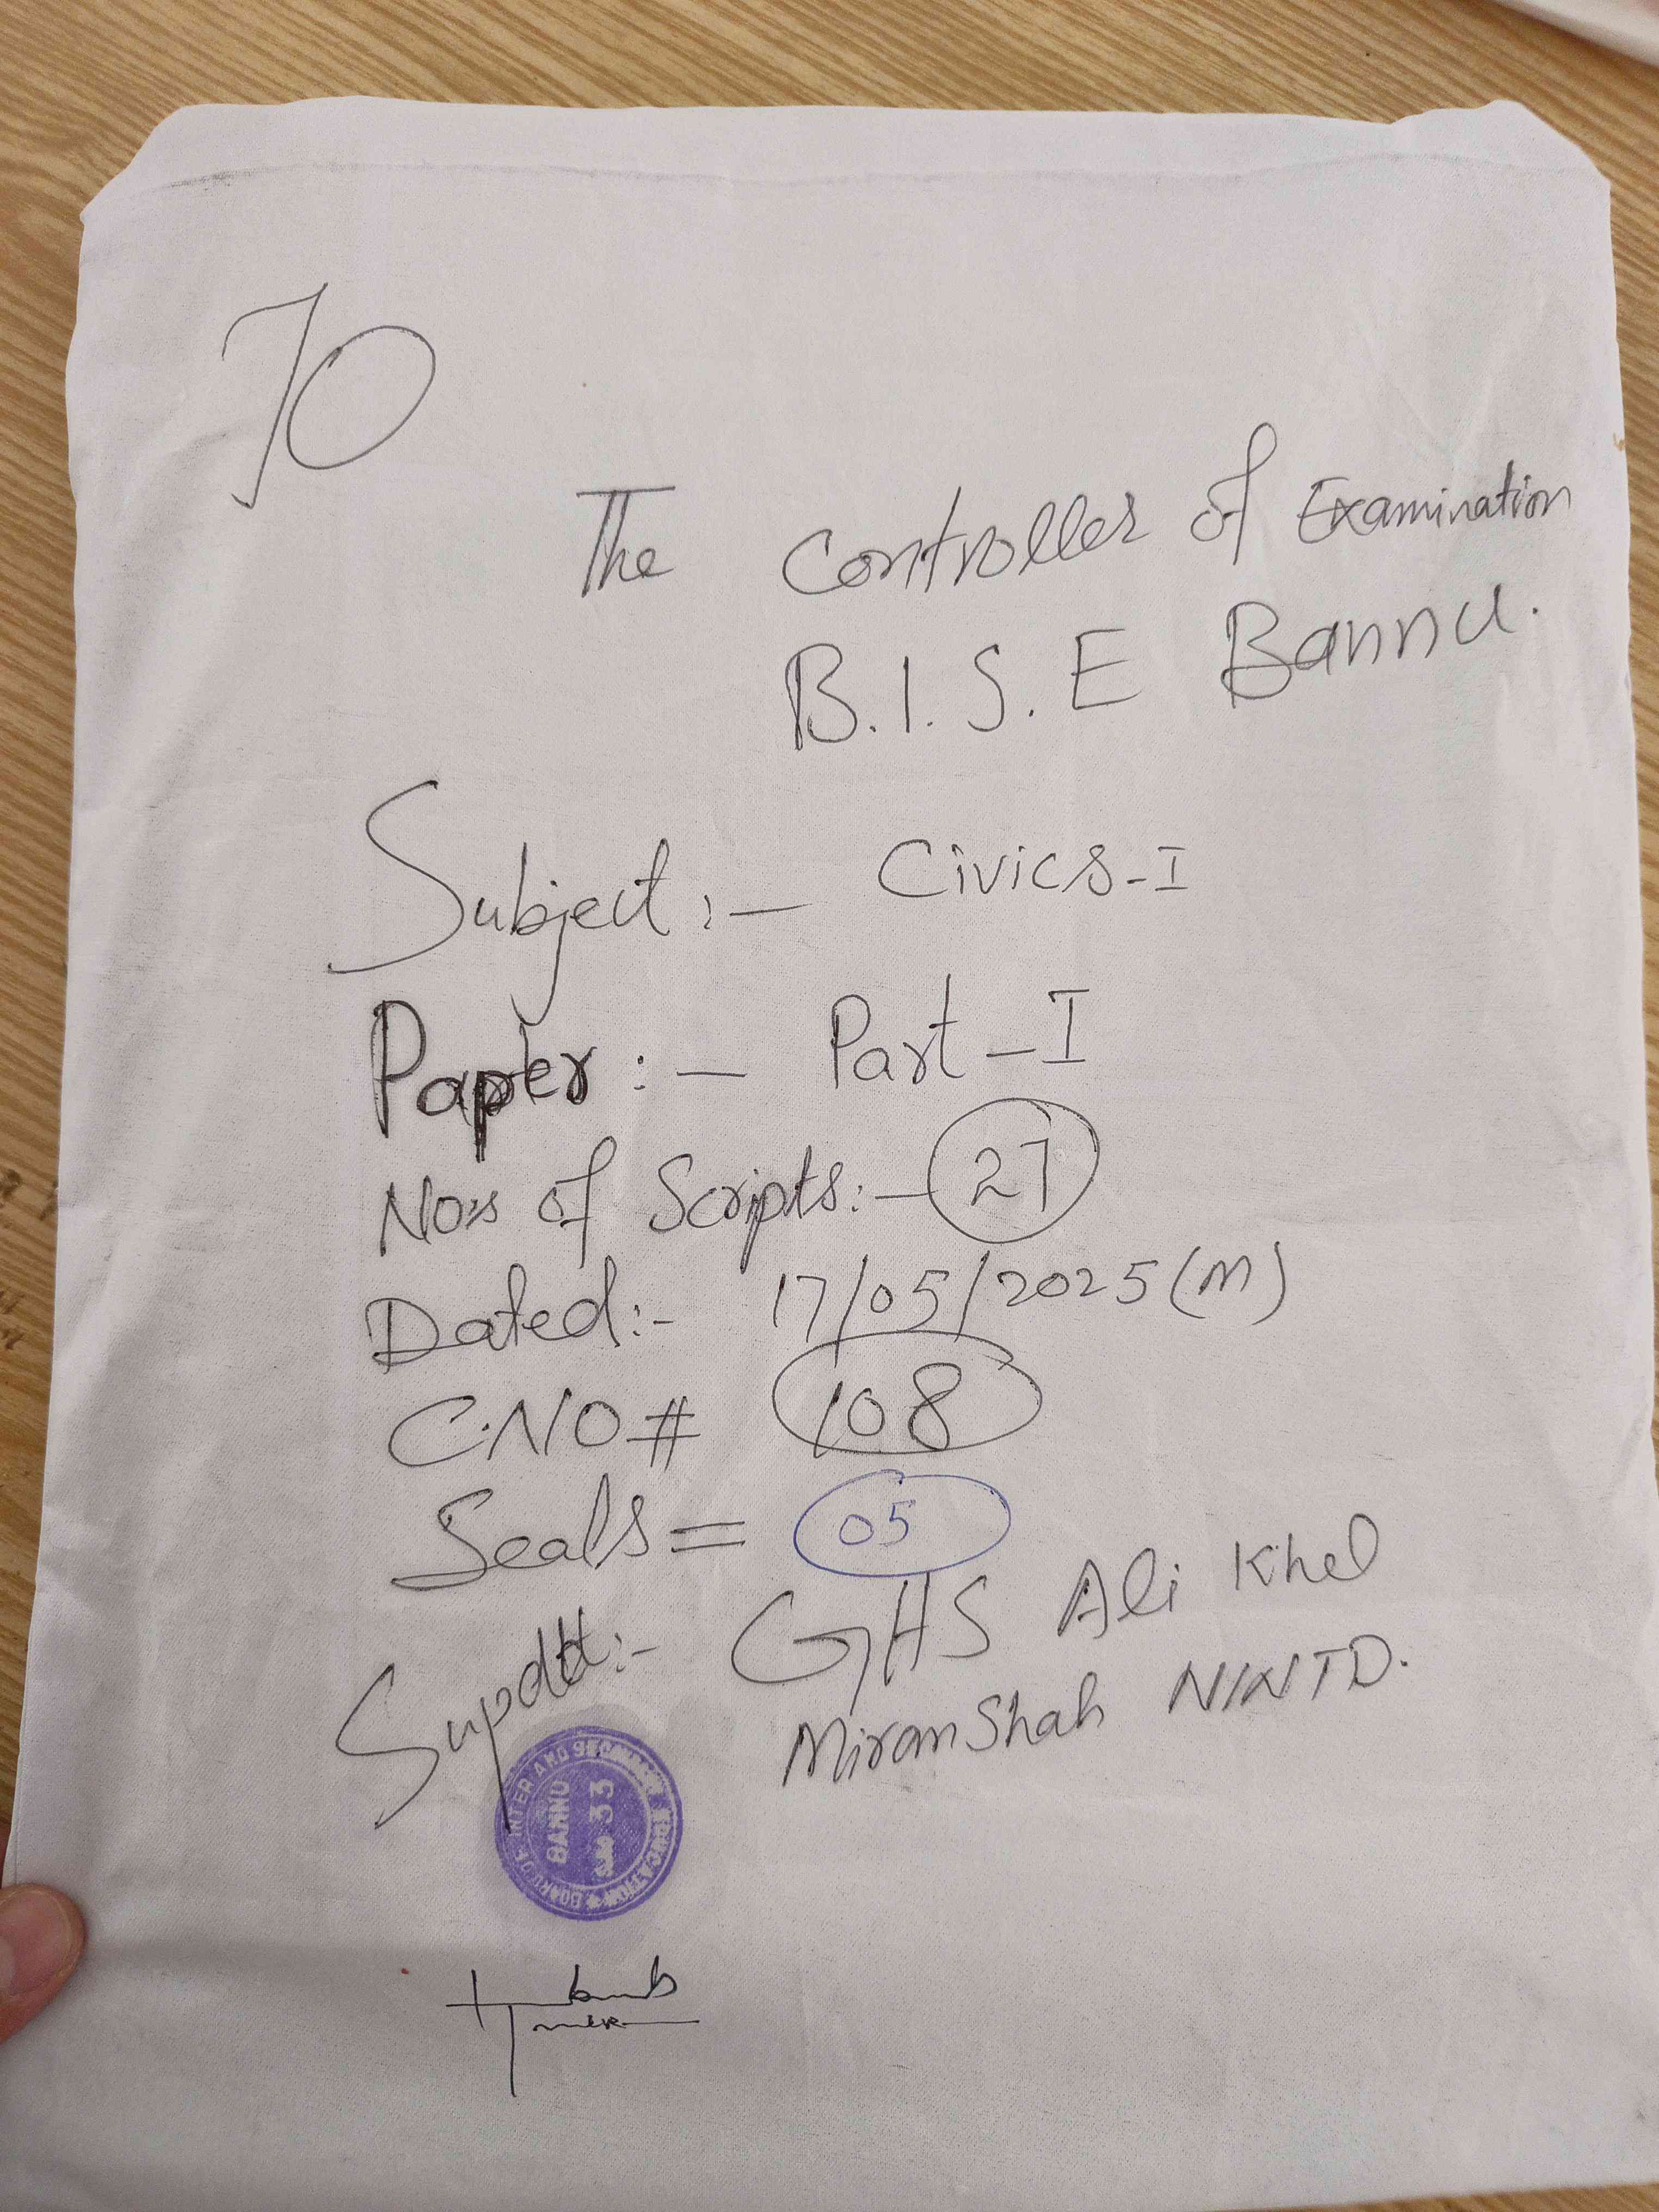 To
The Controller of Examination
B.I.S.E Bannu.
Subject:- Civics-I
Paper:- Part-I
Nos of Scripts:- 27
Dated:- 17/05/2025(M)
C.NO# 108
Seals= 05
Supdtt:- GHS Ali Khel
MiranShah NWTD.
BOARD OF INTER AND SECONDARY EDUCATION
BANNU
33